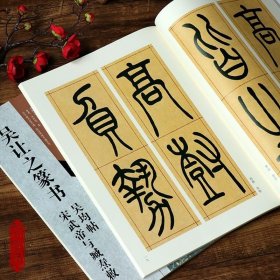 皆生
高樹
負勢
吴让之篆书
吴均帖
宋武帝与臧焘敕